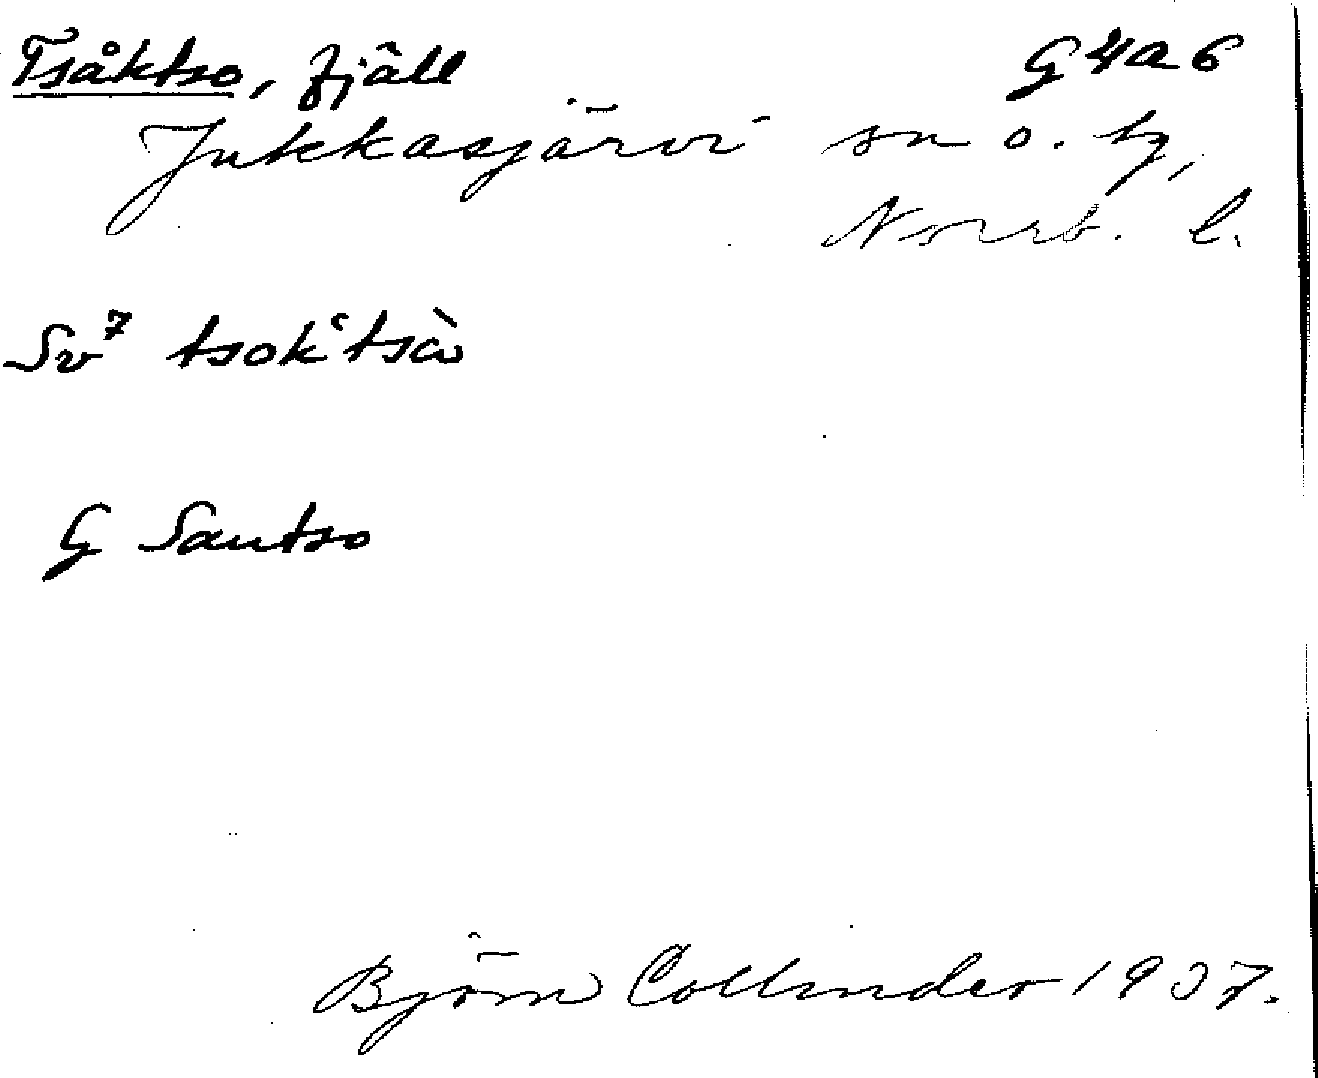 Tsåktso, fjäll G4a6
Jukkasjärvi sn o. tg,
Norrb. l.
Sv⁷ tsok‛tsò
G Sautso
Björn Collinder 1937.